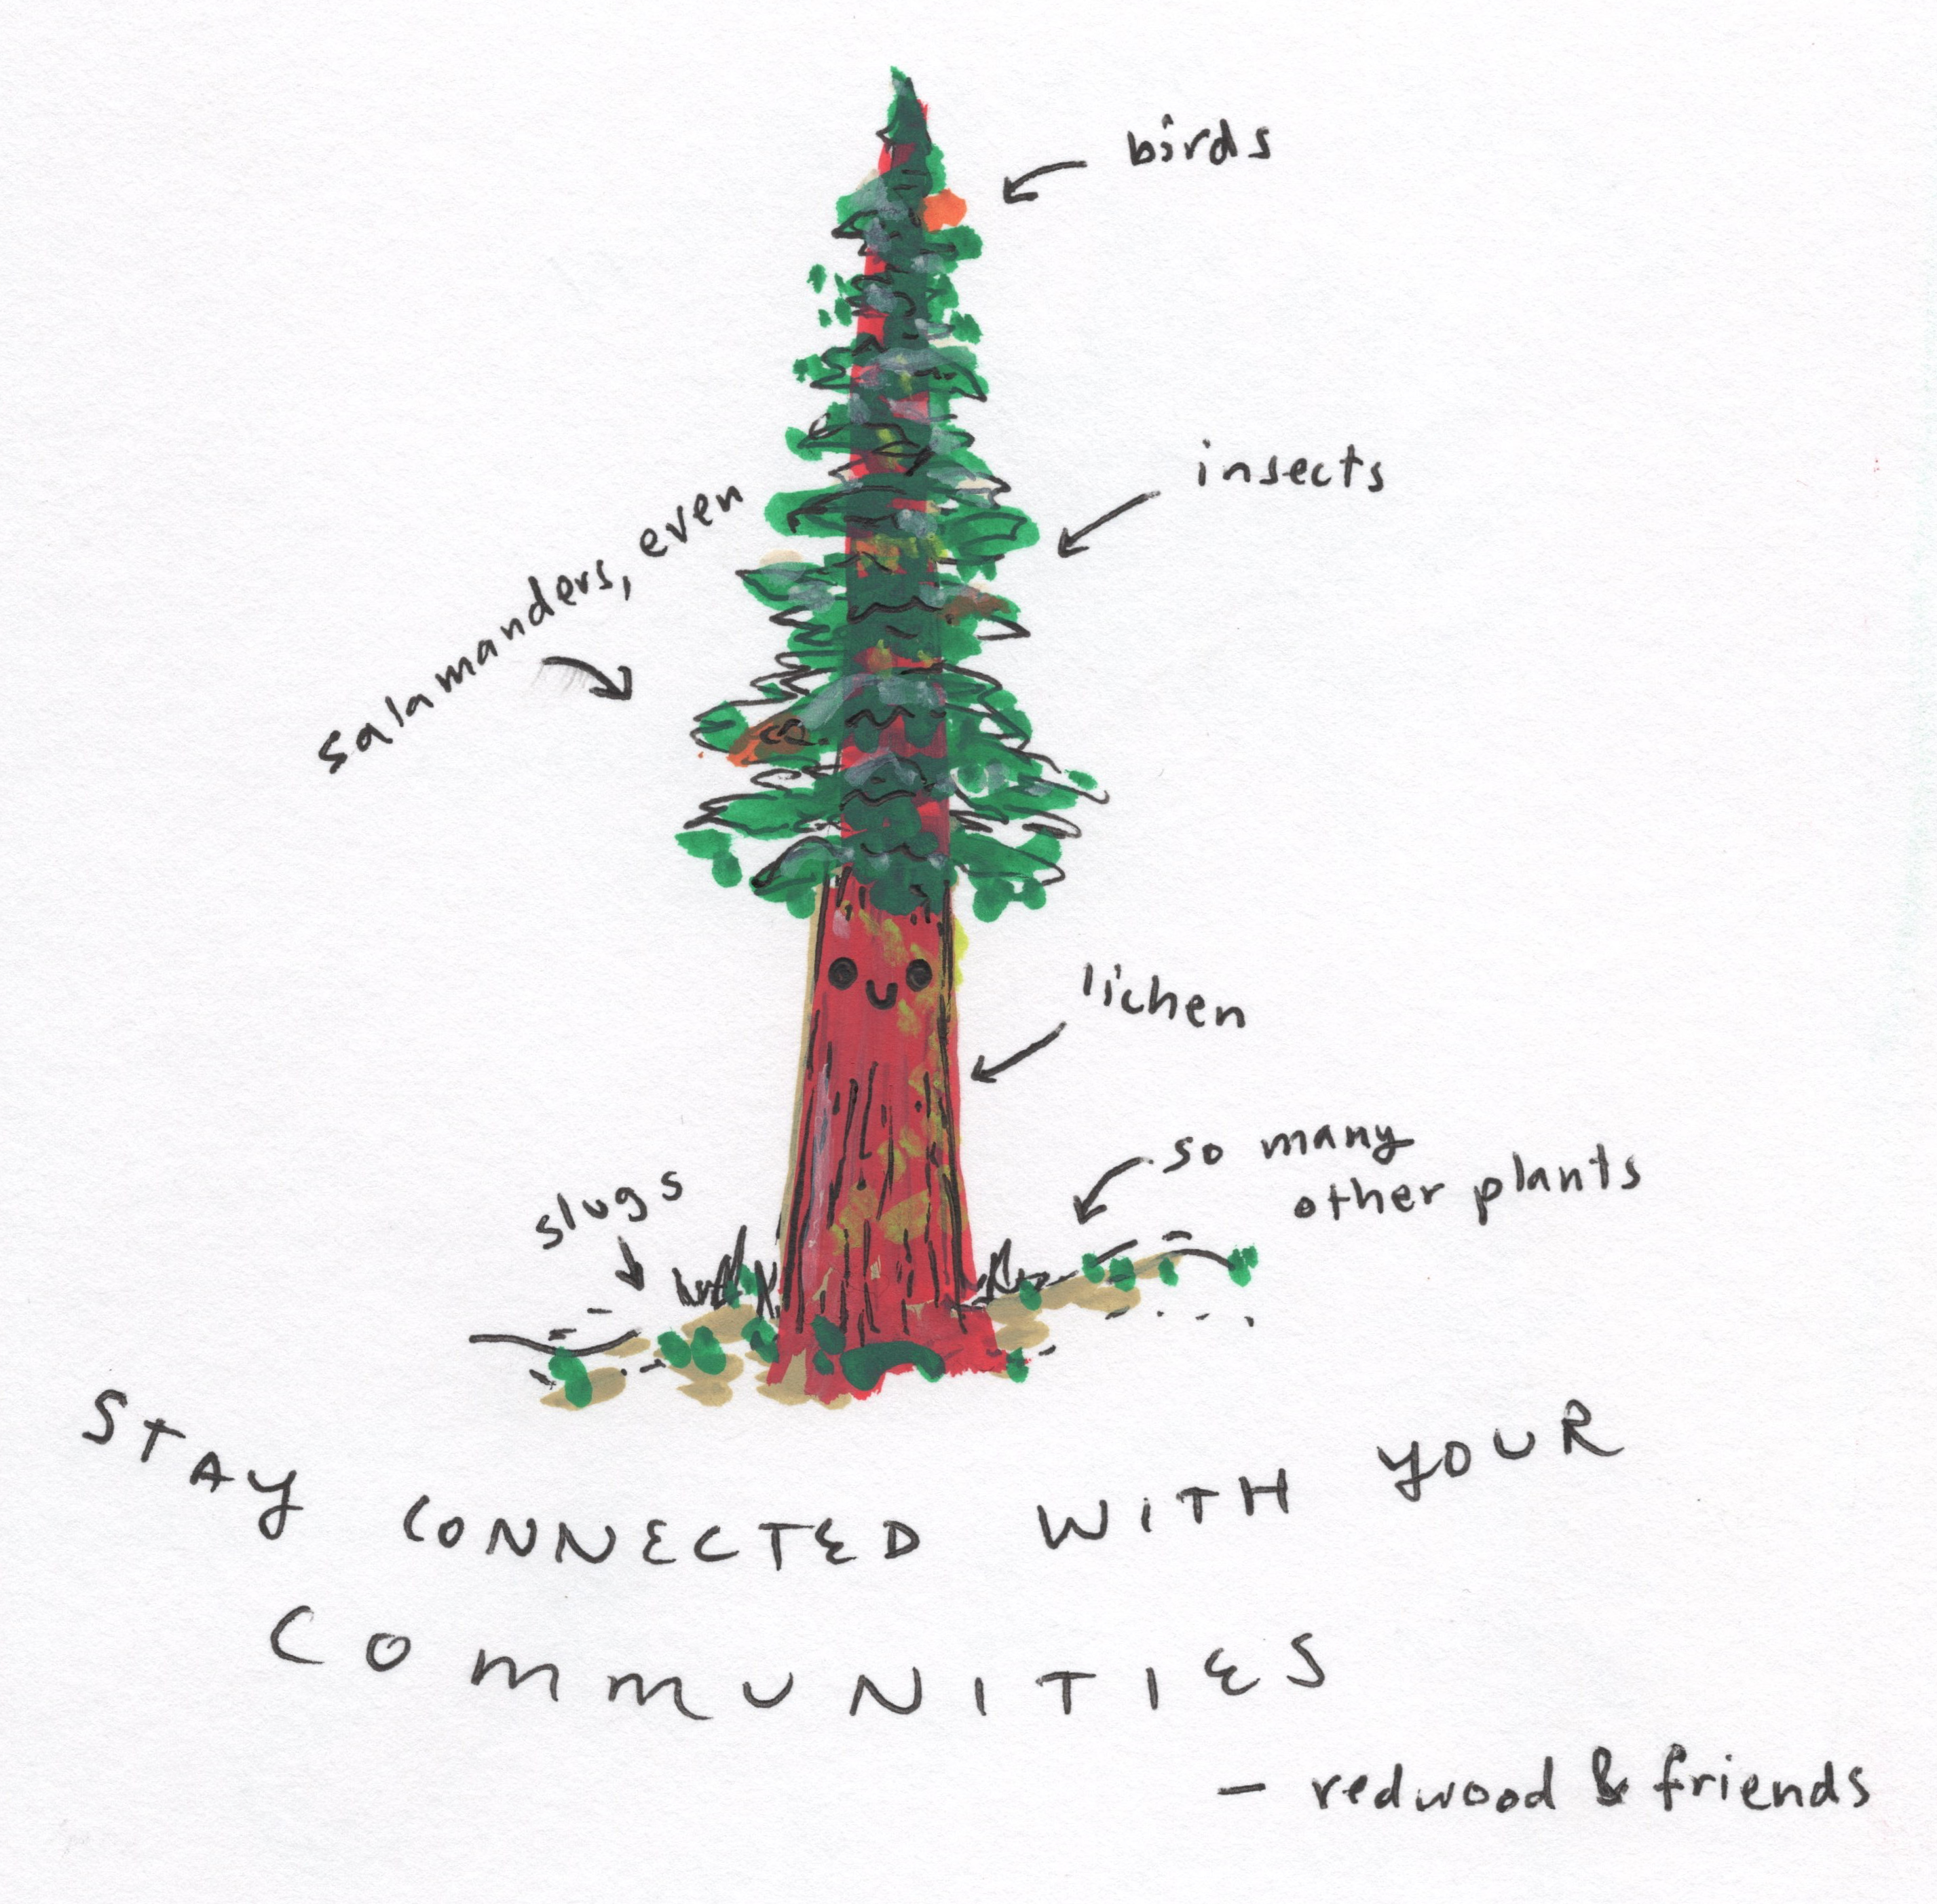 birds
insects
salamanders, even
lichen
so many
other plants
slugs
STAY CONNECTED WITH YOUR
COMMUNITIES
– redwood & friends